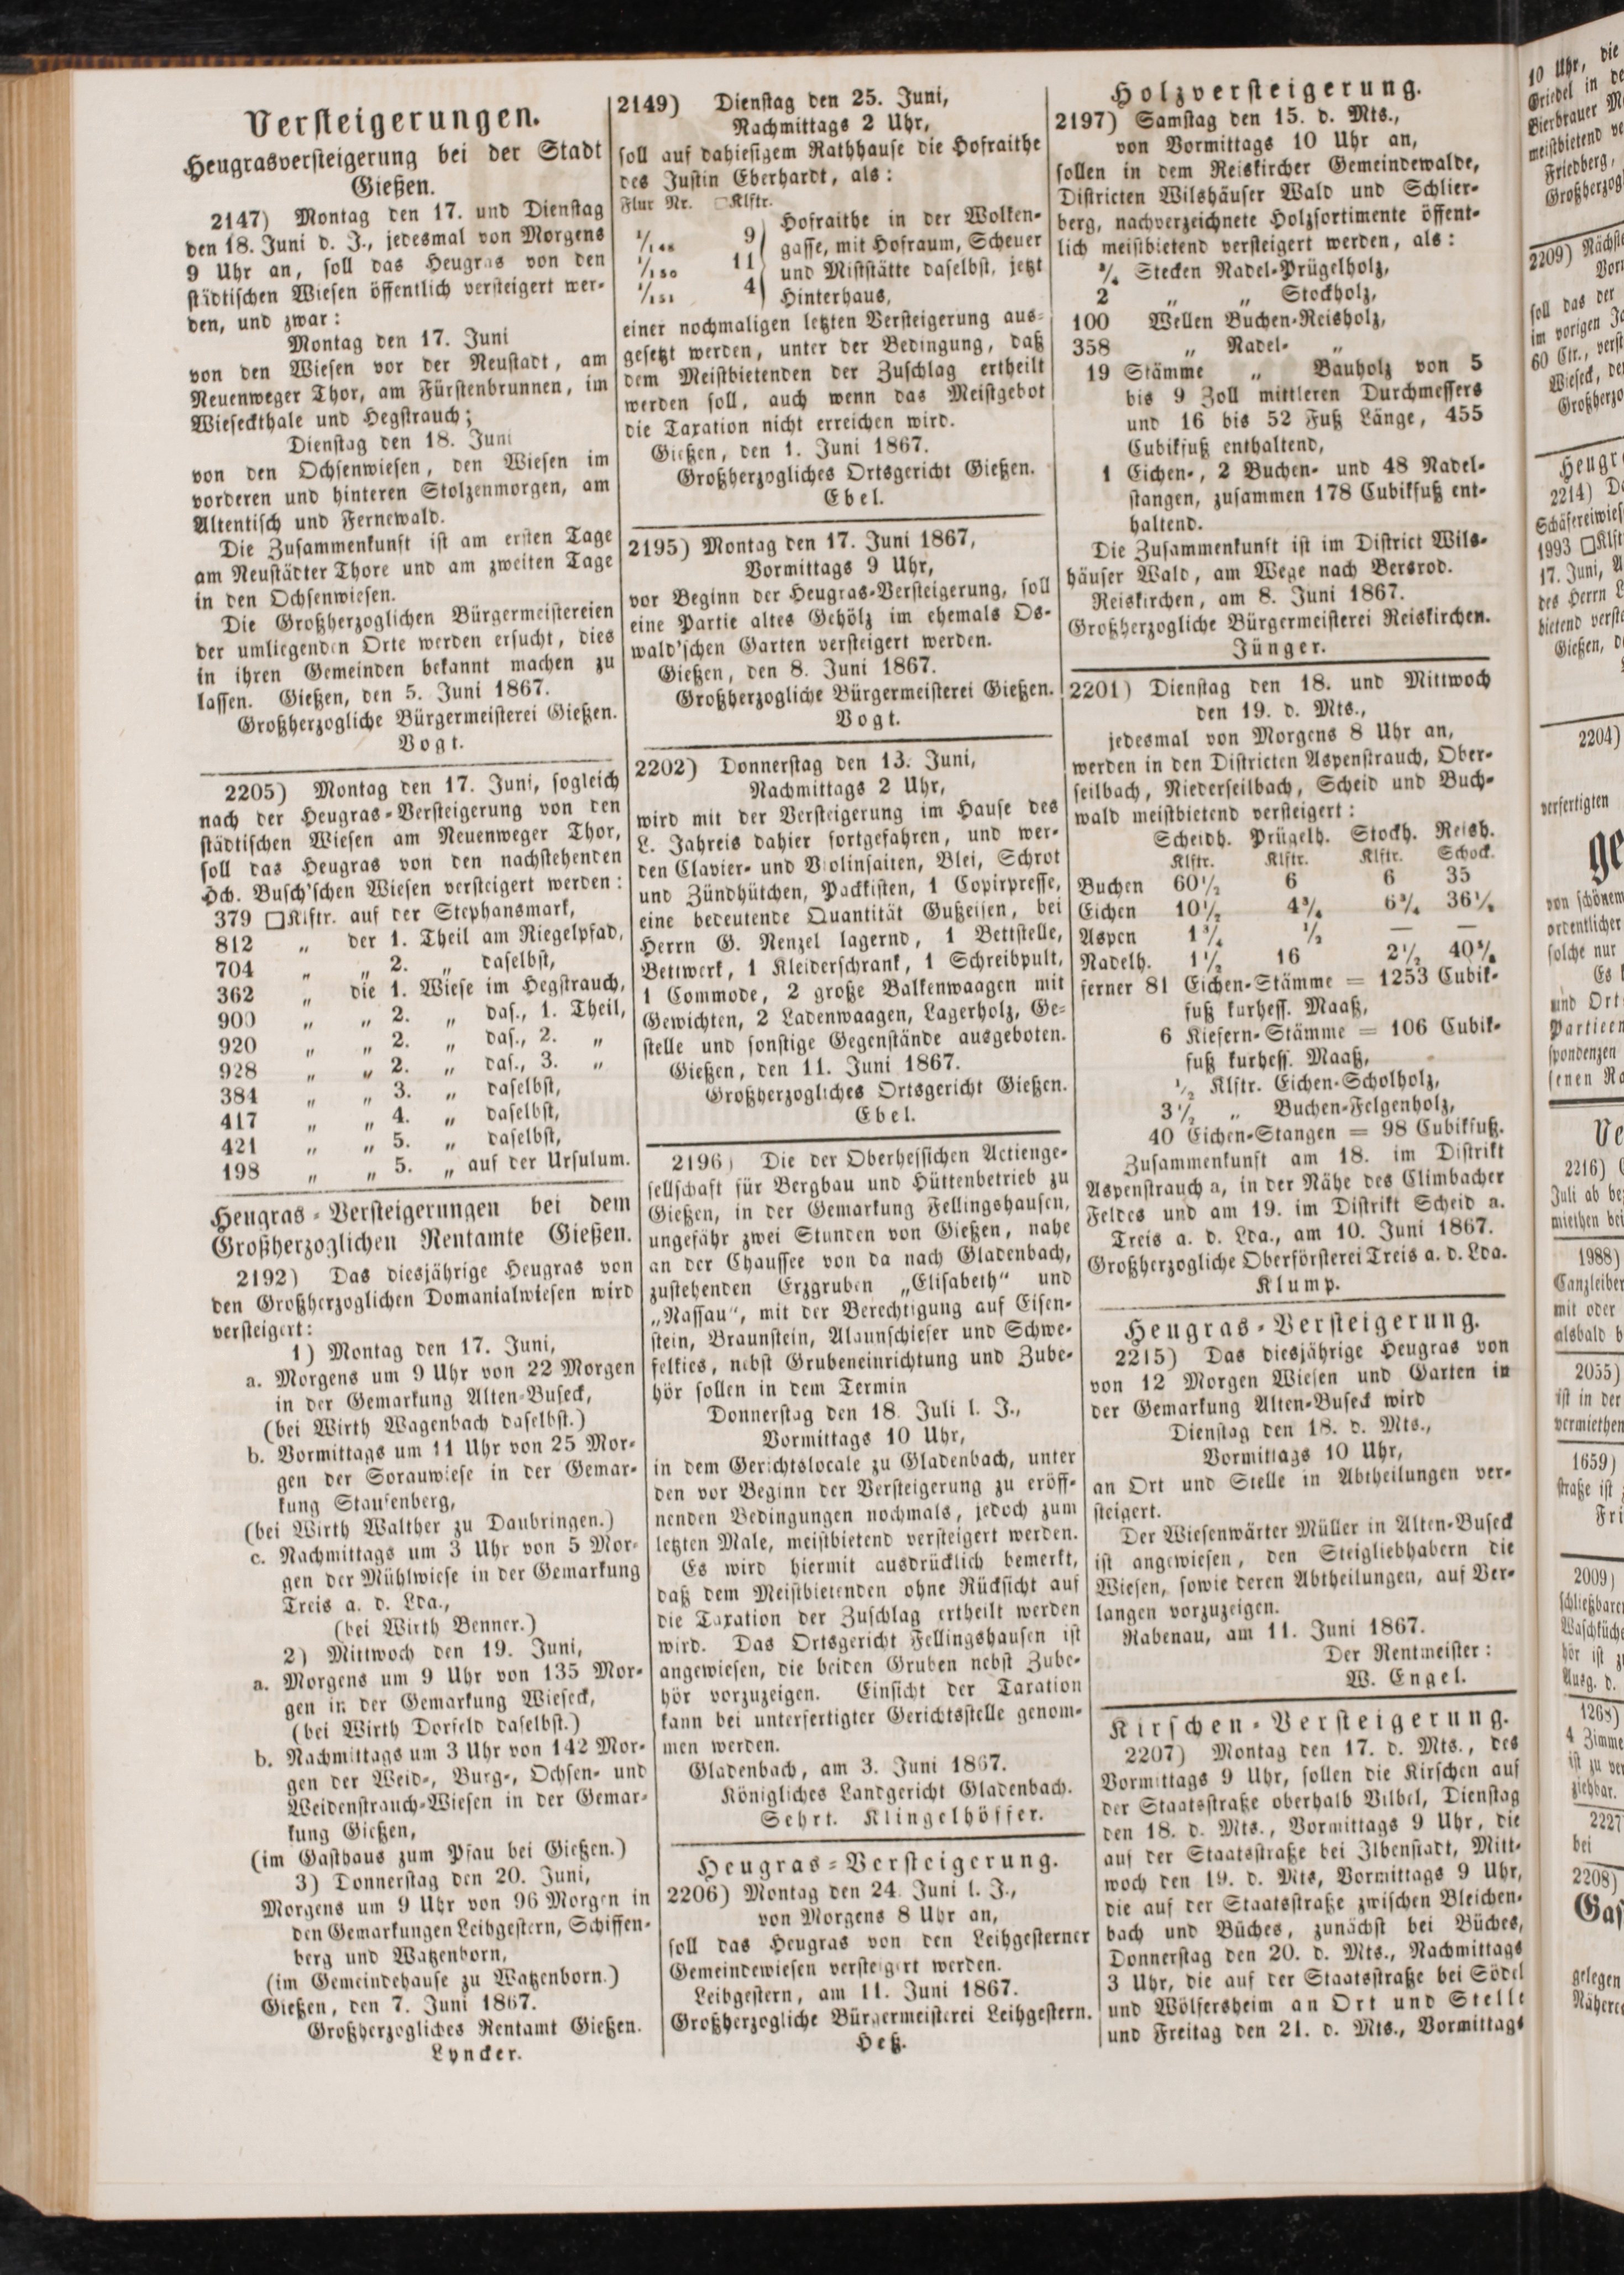 Versteigerungen.
Heugrasversteigerung bei der Stadt
Gießen.
2147) Montag den 17. und Dienstag
den 18. Juni d. J., jedesmal von Morgens
9 Uhr an, soll das Heugras von den
städtischen Wiesen öffentlich versteigert wer-
den, und zwar:
Montag den 17. Juni
von den Wiesen vor der Neustadt, am
Neuenweger Thor, am Fürstenbrunnen, im
Wieseckthale und Hegstrauch;
Dienstag den 18. Juni
von den Ochsenwiesen, den Wiesen im
vorderen und hinteren Stolzenmorgen, am
Altentisch und Fernewald.
Die Zusammenkunft ist am ersten Tage
am Neustädter Thore und am zweiten Tage
in den Ochsenwiesen.
Die Großherzoglichen Bürgermeistereien
der umliegenden Orte werden ersucht, dies
in ihren Gemeinden bekannt machen zu
lassen. Gießen, den 5. Juni 1867.
Großherzogliche Bürgermeisterei Gießen.
Vogt.
2205) Montag den 17. Juni, sogleich
nach der Heugras-Versteigerung von den
städtischen Wiesen am Neuenweger Thor,
soll das Heugras von den nachstehenden
Hch. Busch'schen Wiesen versteigert werden:
379 □Klftr. auf der Stephansmark,
812 „ der 1. Theil am Riegelpfad,
704 „ „ 2. „ daselbst,
362 „ die 1. Wiese im Hegstrauch,
900 „ „ 2. „ das., 1. Theil,
920 „ „ 2. „ das., 2. „
928 „ „ 2. „ das., 3. „
384 „ „ 3. „ daselbst,
417 „ „ 4. „ daselbst,
421 „ „ 5. „ daselbst,
198 „ „ 5. „ auf der Ursulum.
Heugras-Versteigerungen bei dem
Großherzoglichen Rentamte Gießen.
2192) Das diesjährige Heugras von
den Großherzoglichen Domanialwiesen wird
versteigert:
1) Montag den 17. Juni,
a. Morgens um 9 Uhr von 22 Morgen
in der Gemarkung Alten-Buseck,
(bei Wirth Wagenbach daselbst.)
b. Vormittags um 11 Uhr von 25 Mor-
gen der Sorauwiese in der Gemar-
kung Staufenberg,
(bei Wirth Walther zu Daubringen.)
c. Nachmittags um 3 Uhr von 5 Mor-
gen der Mühlwiese in der Gemarkung
Treis a. d. Lda.,
(bei Wirth Benner.)
2) Mittwoch den 19. Juni,
a. Morgens um 9 Uhr von 135 Mor-
gen in der Gemarkung Wieseck,
(bei Wirth Dorfeld daselbst.)
b. Nachmittags um 3 Uhr von 142 Mor-
gen der Weid-, Burg-, Ochsen- und
Weidenstrauch-Wiesen in der Gemar-
kung Gießen,
(im Gasthaus zum Pfau bei Gießen.)
3) Donnerstag den 20. Juni,
Morgens um 9 Uhr von 96 Morgen in
den Gemarkungen Leihgestern, Schiffen-
berg und Watzenborn,
(im Gemeindehause zu Watzenborn.)
Gießen, den 7. Juni 1867.
Großherzogliches Rentamt Gießen.
Lyncker.
2149) Dienstag den 25. Juni,
Nachmittags 2 Uhr,
soll auf dahiesigem Rathhause die Hofraithe
des Justin Eberhardt, als:
Flur Nr. □Klftr.
1/148 9 Hofraithe in der Wolken-
gasse, mit Hofraum, Scheuer
1/150 11 und Miststätte daselbst, jetzt
1/151 4 Hinterhaus,
einer nochmaligen letzten Versteigerung aus-
gesetzt werden, unter der Bedingung, daß
dem Meistbietenden der Zuschlag ertheilt
werden soll, auch wenn das Meistgebot
die Taxation nicht erreichen wird.
Gießen, den 1. Juni 1867.
Großherzogliches Ortsgericht Gießen.
Ebel.
2195) Montag den 17. Juni 1867,
Vormittags 9 Uhr,
vor Beginn der Heugras-Versteigerung, soll
eine Partie altes Gehölz im ehemals Os-
wald'schen Garten versteigert werden.
Gießen, den 8. Juni 1867.
Großherzogliche Bürgermeisterei Gießen.
Vogt.
2202) Donnerstag den 13. Juni,
Nachmittags 2 Uhr,
wird mit der Versteigerung im Hause des
L. Jahreis dahier fortgefahren, und wer-
den Clavier- und Violinsaiten, Blei, Schrot
und Zündhütchen, Packkisten, 1 Copirpresse,
eine bedeutende Quantität Gußeisen, bei
Herrn G. Renzel lagernd, 1 Bettstelle,
Bettwerk, 1 Kleiderschrank, 1 Schreibpult,
1 Commode, 2 große Balkenwaagen mit
Gewichten, 2 Ladenwaagen, Lagerholz, Ge-
stelle und sonstige Gegenstände ausgeboten.
Gießen, den 11. Juni 1867.
Großherzogliches Ortsgericht Gießen.
Ebel.
2196) Die der Oberhessischen Actienge-
sellschaft für Bergbau und Hüttenbetrieb zu
Gießen, in der Gemarkung Fellingshausen,
ungefähr zwei Stunden von Gießen, nahe
an der Chaussee von da nach Gladenbach,
zustehenden Erzgruben „Elisabeth“ und
„Nassau“, mit der Berechtigung auf Eisen-
stein, Braunstein, Alaunschiefer und Schwe-
felkies, nebst Grubeneinrichtung und Zube-
hör sollen in dem Termin
Donnerstag den 18. Juli l. J.,
Vormittags 10 Uhr,
in dem Gerichtslocale zu Gladenbach, unter
den vor Beginn der Versteigerung zu eröff-
nenden Bedingungen nochmals, jedoch zum
letzten Male, meistbietend versteigert werden.
Es wird hiermit ausdrücklich bemerkt,
daß dem Meistbietenden ohne Rücksicht auf
die Taxation der Zuschlag ertheilt werden
wird. Das Ortsgericht Fellingshausen ist
angewiesen, die beiden Gruben nebst Zube-
hör vorzuzeigen. Einsicht der Taxation
kann bei unterfertigter Gerichtsstelle genom-
men werden.
Gladenbach, am 3. Juni 1867.
Königliches Landgericht Gladenbach.
Sehrt. Klingelhöffer.
Heugras-Versteigerung.
2206) Montag den 24. Juni l. J.,
von Morgens 8 Uhr an,
soll das Heugras von den Leihgesterner
Gemeindewiesen versteigert werden.
Leihgestern, am 11. Juni 1867.
Großherzogliche Bürgermeisterei Leihgestern.
Heß.
Holzversteigerung.
2197) Samstag den 15. d. Mts.,
von Vormittags 10 Uhr an,
sollen in dem Reiskircher Gemeindewalde,
Districten Wilshäuser Wald und Schlier-
berg, nachverzeichnete Holzsortimente öffent-
lich meistbietend versteigert werden, als:
3/4 Stecken Nadel-Prügelholz,
2 „ „ Stockholz,
100 Wellen Buchen-Reisholz,
358 „ Nadel- „
19 Stämme „ Bauholz von 5
bis 9 Zoll mittleren Durchmessers
und 16 bis 52 Fuß Länge, 455
Cubikfuß enthaltend,
1 Eichen-, 2 Buchen- und 48 Nadel-
stangen, zusammen 178 Cubikfuß ent-
haltend.
Die Zusammenkunft ist im District Wils-
häuser Wald, am Wege nach Bersrod.
Reiskirchen, am 8. Juni 1867.
Großherzogliche Bürgermeisterei Reiskirchen.
Jünger.
2201) Dienstag den 18. und Mittwoch
den 19. d. Mts.,
jedesmal von Morgens 8 Uhr an,
werden in den Districten Aspenstrauch, Ober-
seilbach, Niederseilbach, Scheid und Buch-
wald meistbietend versteigert:
Scheidh. Prügelh. Stockh. Reish.
Klftr. Klftr. Klftr. Schock.
Buchen 60 1/2 6 6 35
Eichen 10 1/2 4 3/4 6 3/4 36 1/4
Aspen 1 3/4 1/2 — —
Nadelh. 1 1/2 16 2 1/2 40 3/4
ferner 81 Eichen-Stämme = 1253 Cubik-
fuß kurhess. Maaß,
6 Kiefern-Stämme = 106 Cubik-
fuß kurhess. Maaß,
1/2 Klftr. Eichen-Scholholz,
3 1/2 „ Buchen-Felgenholz,
40 Eichen-Stangen = 98 Cubikfuß.
Zusammenkunft am 18. im Distrikt
Aspenstrauch a, in der Nähe des Climbacher
Feldes und am 19. im Distrikt Scheid a.
Treis a. d. Lda., am 10. Juni 1867.
Großherzogliche Oberförsterei Treis a. d. Lda.
Klump.
Heugras-Versteigerung.
2215) Das diesjährige Heugras von
von 12 Morgen Wiesen und Garten in
der Gemarkung Alten-Buseck wird
Dienstag den 18. d. Mts.,
Vormittags 10 Uhr,
an Ort und Stelle in Abtheilungen ver-
steigert.
Der Wiesenwärter Müller in Alten-Buseck
ist angewiesen, den Steigliebhabern die
Wiesen, sowie deren Abtheilungen, auf Ver-
langen vorzuzeigen.
Rabenau, am 11. Juni 1867.
Der Rentmeister:
W. Engel.
Kirschen-Versteigerung.
2207) Montag den 17. d. Mts., des
Vormittags 9 Uhr, sollen die Kirschen auf
der Staatsstraße oberhalb Vilbel, Dienstag
den 18. d. Mts., Vormittags 9 Uhr, die
auf der Staatsstraße bei Ilbenstadt, Mitt-
woch den 19. d. Mts, Vormittags 9 Uhr,
die auf der Staatsstraße zwischen Bleichen-
bach und Büches, zunächst bei Büches,
Donnerstag den 20. d. Mts., Nachmittags
3 Uhr, die auf der Staatsstraße bei Södel
und Wölfersheim an Ort und Stelle
und Freitag den 21. d. Mts., Vormittags
10 Uhr, die
Griedel in
Bierbrauer
meistbietend
Friedberg,
2209)
soll das der
im vorigen
60 Ctr.,
Wieseck,
2214)
1993
17. Juni,
des Herrn
bietend
Gießen,
2204)
verfertigten
von schönem
ordentlicher
solche nur
und
2216)
Juli ab
miethen bei
1988)
mit oder
alsbald
2055)
ist in der
vermiethen
1659)
straße ist
2009)
hör ist
1268)
4 Zimme
ist zu
ziehbar.
2227
bei
2208)
gelegen